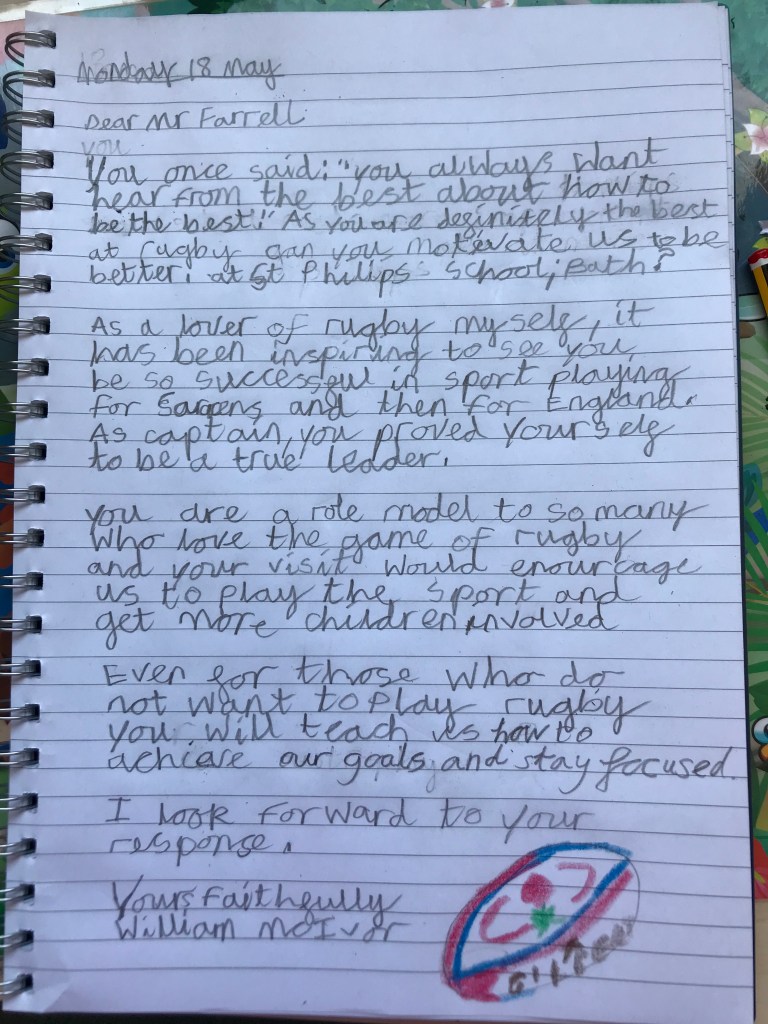 Monday 18 May
Dear Mr Farrell
you
You once said: "you always want
hear from the best about how to
be the best!" As you are definitely the best
at rugby can you motivate us to be
better. at St Philips School, Bath?
As a lover of rugby myself, it
has been inspiring to see you
be so successful in sport playing
for Sarpens and then for England.
As captain, you proved yourself
to be a true leader.
you are a role model to so many
who love the game of rugby
and your visit would enourcage
us to play the sport and
get more children involved
Even for those who do
not want to play rugby
you will teach us how to
achieve our goals and stay focused.
I look forward to your
response.
Yours Faithfully
William McIvor